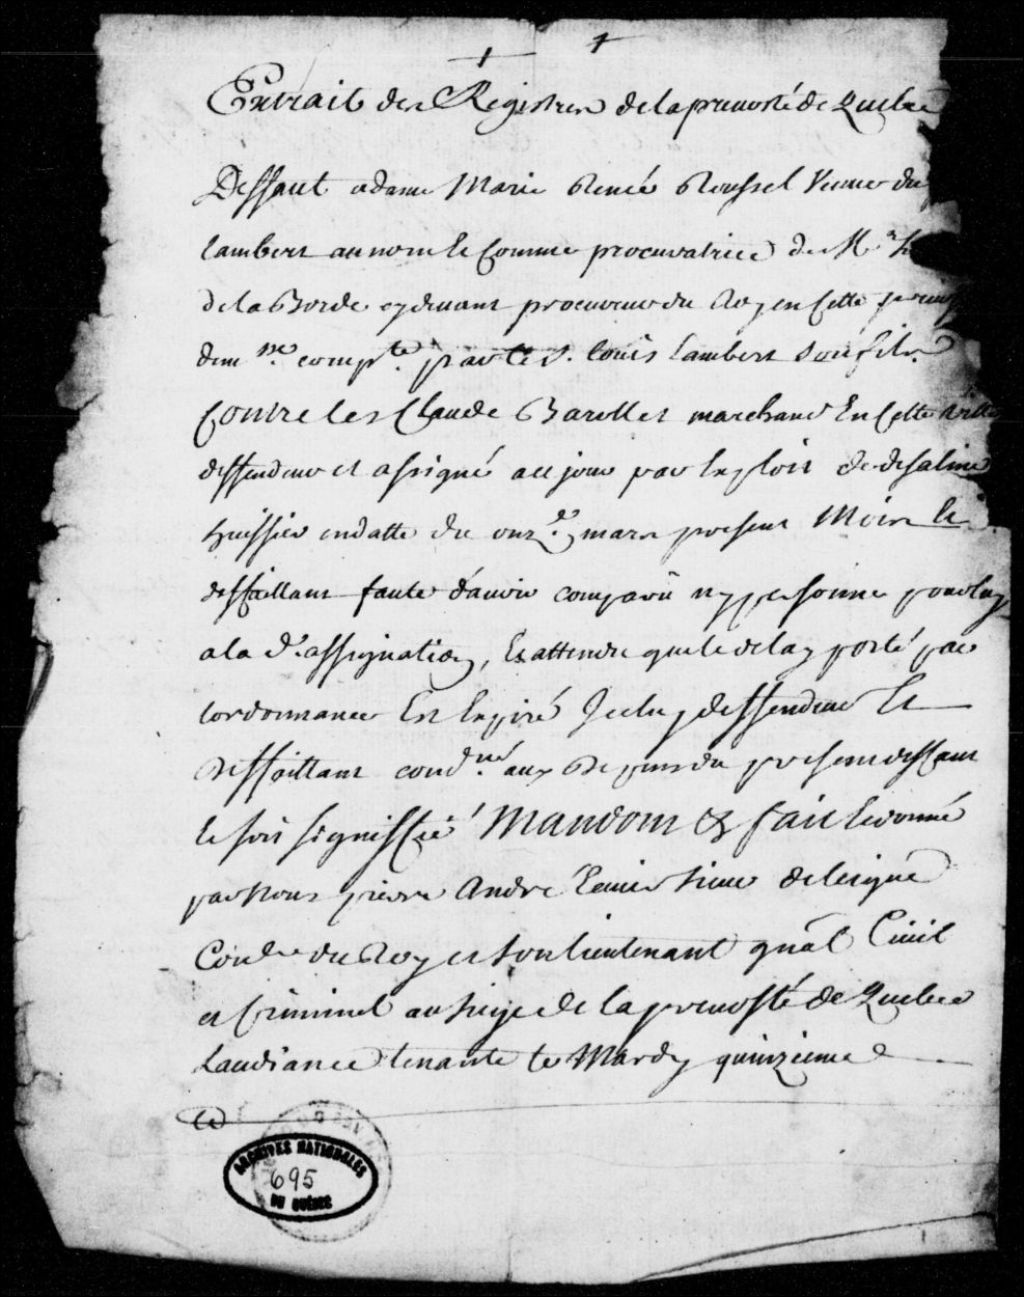 Extrait des Registres de la prevosté de Quebec
Deffaut a dame Marie Renée Roussel Veuve du
lambert au nom & Comme procuratrice de Mr
de la Borde cydevant procureur du Roy en Cette
dem.se comp.te par le S. louis Lambert son fils
Contre le s Claude Barolles marchand En Cette ville
deffendeur et assigné a ce jour par Exploit de desaline
huissier en datte du onz.e mars present Mois le
deffaillant faute d'avoir comparû ny personne pour luy
a la d. assignation, Et attendu que le delay porté par
lordonnance Est Expiré Iceluy deffendeur Et
Deffaillant cond.né aux Depens du present deffaut
Et soit signiffié Mandons &c fait & donné
par Nous pierre André Sieur de leigne
Con.er du Roy et son lieutenant gnâl Civil
et Criminel au siege de la prevosté de Quebec
Laudiance tenante le Mardy quinzieme
ARCHIVES NATIONALES
695
DU QUÉBEC